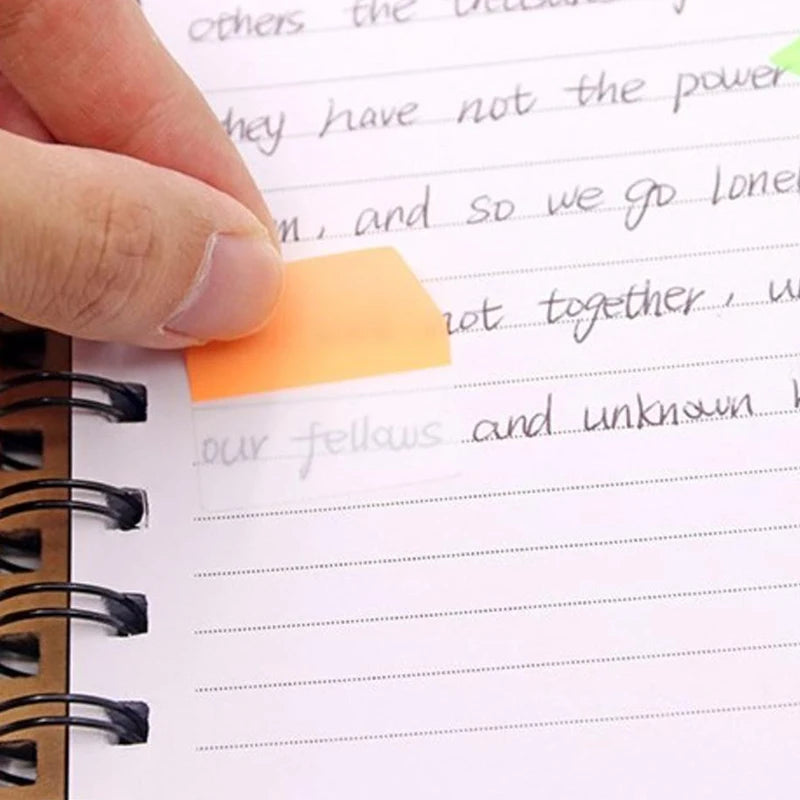 others the
hey have not the power
, and so we go lonel
not together,
our fellows and unknown